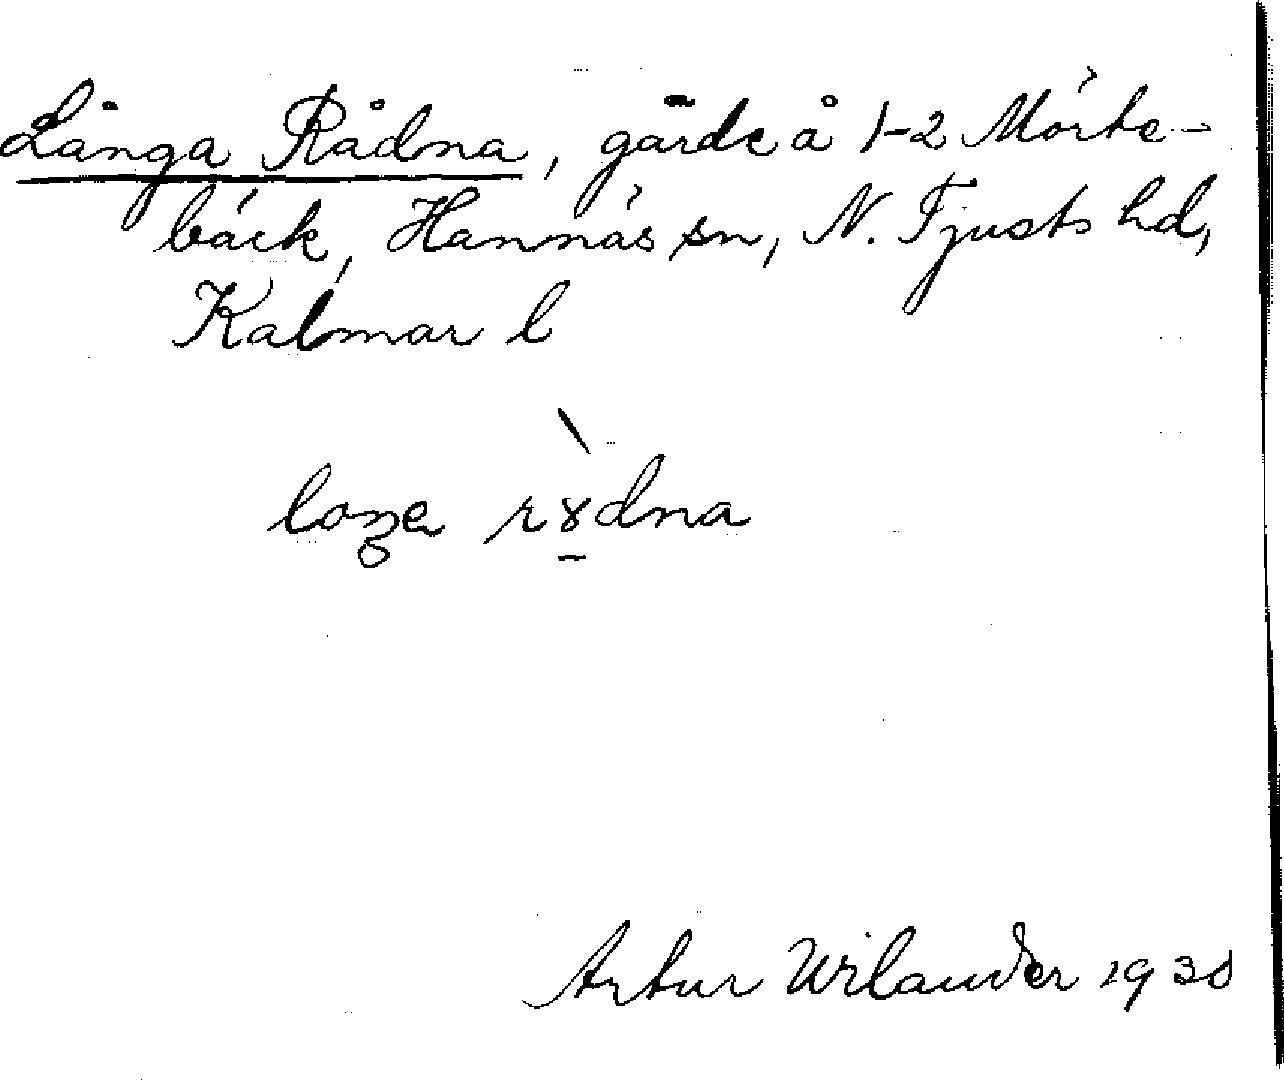 Långa Rådna, gärde å 1-2 Mörte-
bäck, Hannäs sn, N. Tjusts hd,
Kalmar l
Artur Wilander 1930